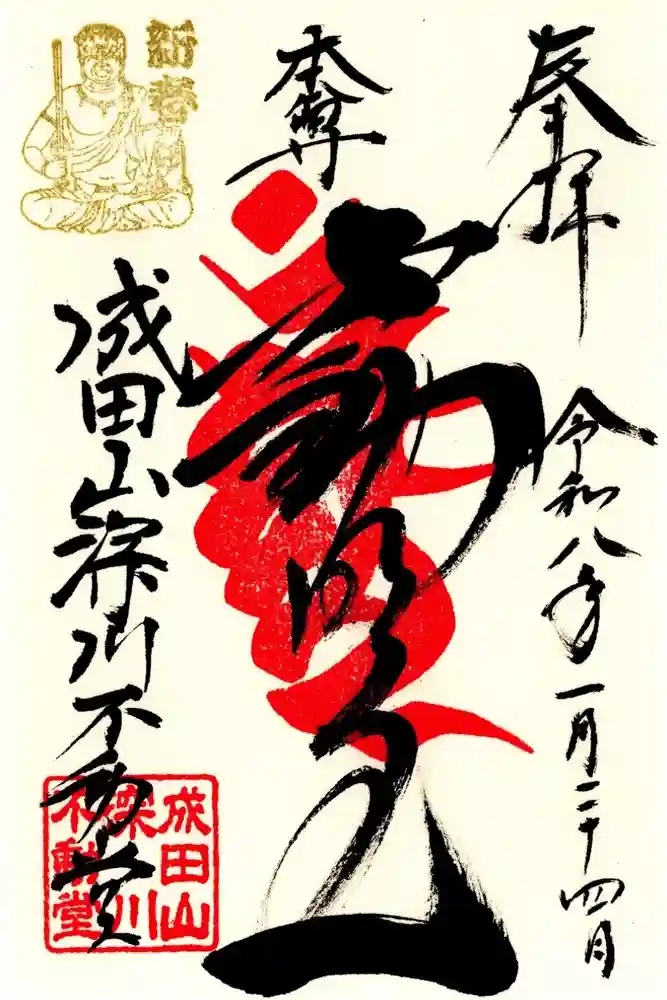 奉拝
令和八年一月二十四日
本尊
不動明王
新春
成田山深川不動堂
成田山
深川
不動堂